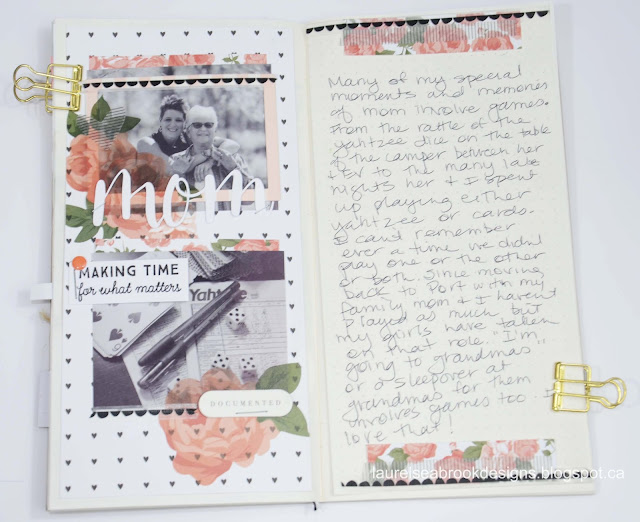 mom
MAKING TIME
for what matters
Yahtzee
DOCUMENTED
Many of my special
moments and memories
of mom involve games.
From the rattle of the
yahtzee dice on the table
of the camper between her
to the many late
nights her & I spent
up playing either
yahtzee or cards.
I can't remember
ever a time we didn't
play one or the other
or both. Since moving
back to Port with my
family mom & I haven't
played as much but
my girls have taken
on that role. "I'm
going to grandmas"
or a sleepover at
grandmas for them
involves games too. I
love that!
laurelseabrookdesigns.blogspot.ca